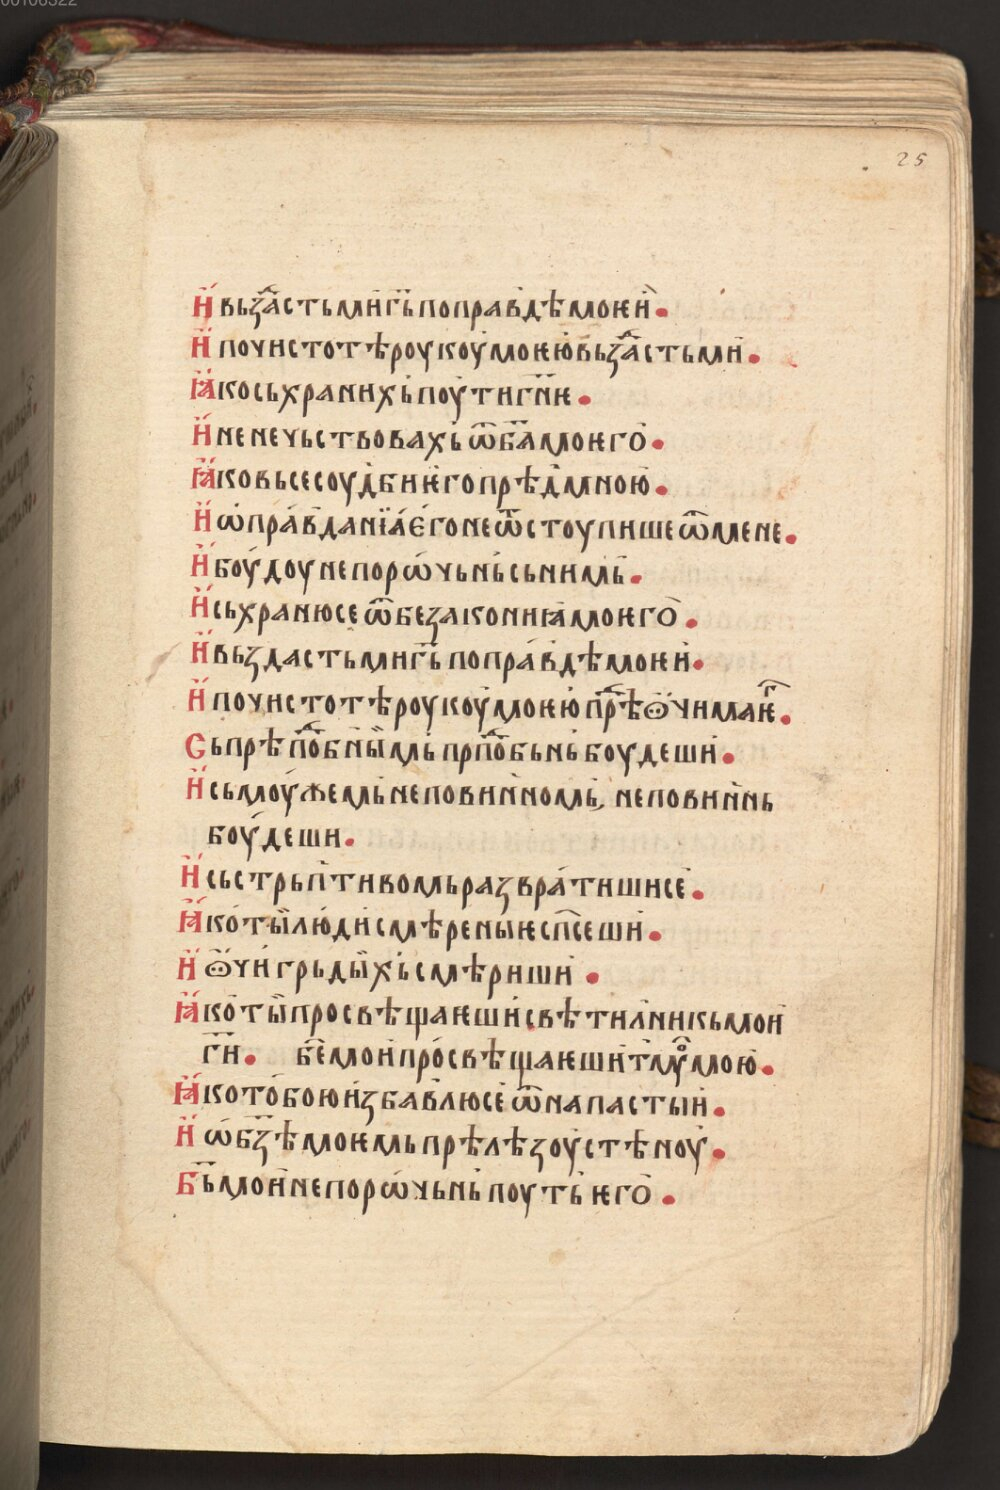 25
И҆ вьздⷭ҇а сть ми г҃ь по правдѣ моѥи҆ .
И҆ по чистотѣ роукоу моѥю вьздⷭ҇а сть ми .
Ꙗ҆ко сьхранихь поути гн҃ѥ .
И҆ не нечьствовахь ѿ б҃а моѥго .
Ꙗ҆ко вьсе соудби ѥго прѣд мною .
И҆ ѡправданїа є҆го не ѿстоупише ѿ мене .
И҆ боудоу непорѡчьнь сь нимь .
И҆ сьхраню се ѿ безакониꙗ моѥго .
И҆ вьздасть ми г҃ь по правдѣ моѥи .
И҆ по чистотѣ роукоу моѥю прⷣѣ ѻчима ѥгⷢ .
Сь прѣпⷣобнымь прпⷣобьнь боудеши .
И҆ сь моужемь неповинномь, неповиннь
боудеши .
И҆ сь стрьптивомь развратиши се .
Ꙗ҆ко ты люди смѣреныѥ сп҃сеши .
И҆ ѻчи грьдыхь смѣриши .
Ꙗ҆ко ты просвѣщаѥши свѣтилникь мои
г҃и . б҃е мои просвѣщаѥши тмⷹ мою .
Ꙗ҆ко тобою избавлю се ѿ напастыи .
И҆ ѡ бз҃ѣ моѥмь прѣлѣзоу стѣноу .
Б҃ь мои непорѡчьнь поуть ѥго .